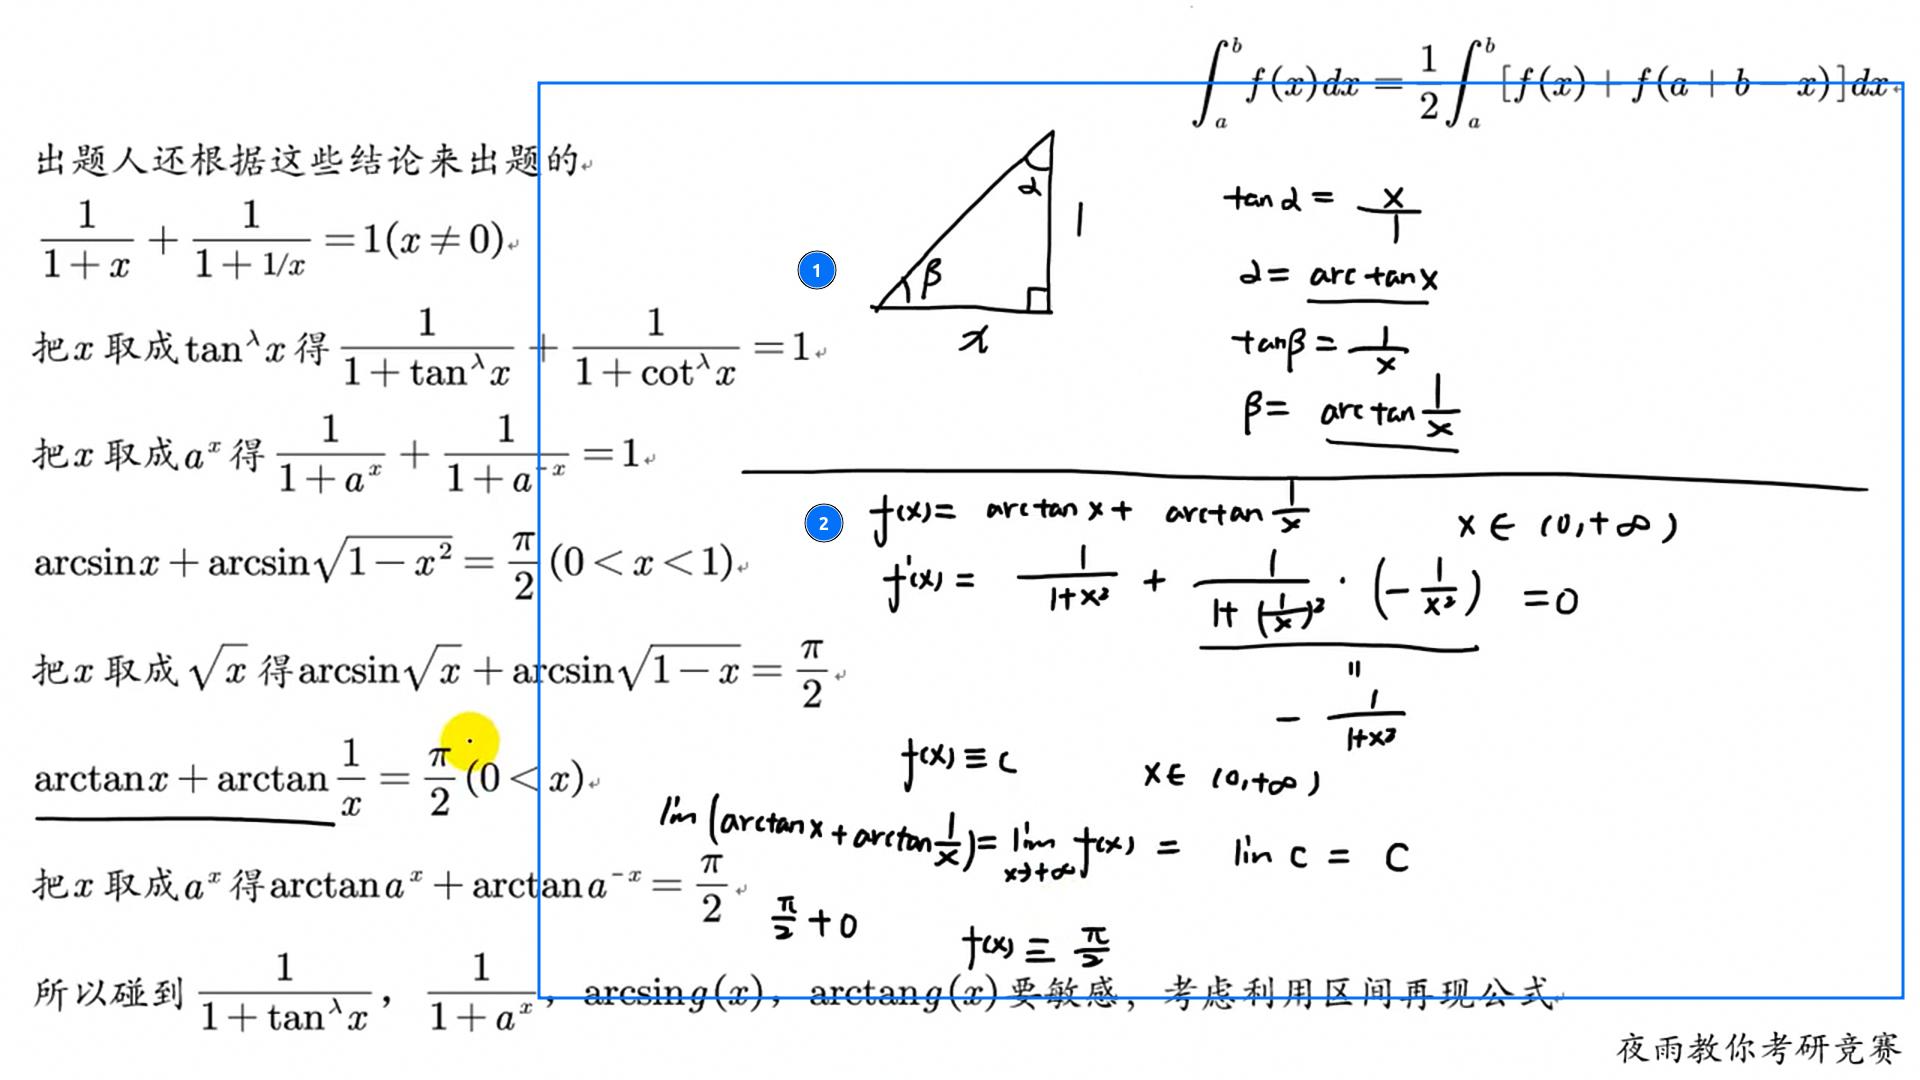 ∫_a^b f(x)dx = 1/2 ∫_a^b [f(x) + f(a + b − x)]dx
出题人还根据这些结论来出题的
1/(1+x) + 1/(1+1/x) = 1(x ≠ 0)
把x取成tan^λ x得 1/(1+tan^λ x) + 1/(1+cot^λ x) = 1
把x取成a^x得 1/(1+a^x) + 1/(1+a^−x) = 1
arcsinx + arcsin√(1−x²) = π/2 (0 < x < 1)
把x取成√x得arcsin√x + arcsin√(1−x) = π/2
arctanx + arctan 1/x = π/2 (0 < x)
把x取成a^x得arctana^x + arctana^−x = π/2
所以碰到 1/(1+tan^λ x), 1/(1+a^x), arcsing(x), arctang(x)要敏感, 考虑利用区间再现公式
1
α
1
β
x
tanα = x/1
α = arctanx
tanβ = 1/x
β = arctan 1/x
2
f(x) = arctanx + arctan 1/x x ∈ (0,+∞)
f'(x) = 1/(1+x²) + 1/(1+(1/x)²) · (−1/x²) = 0
=
− 1/(1+x²)
f(x) ≡ c x ∈ (0,+∞)
lim (arctanx + arctan 1/x) = lim_{x→+∞} f(x) = lin c = C
π/2 + 0
f(x) ≡ π/2
夜雨教你考研竞赛